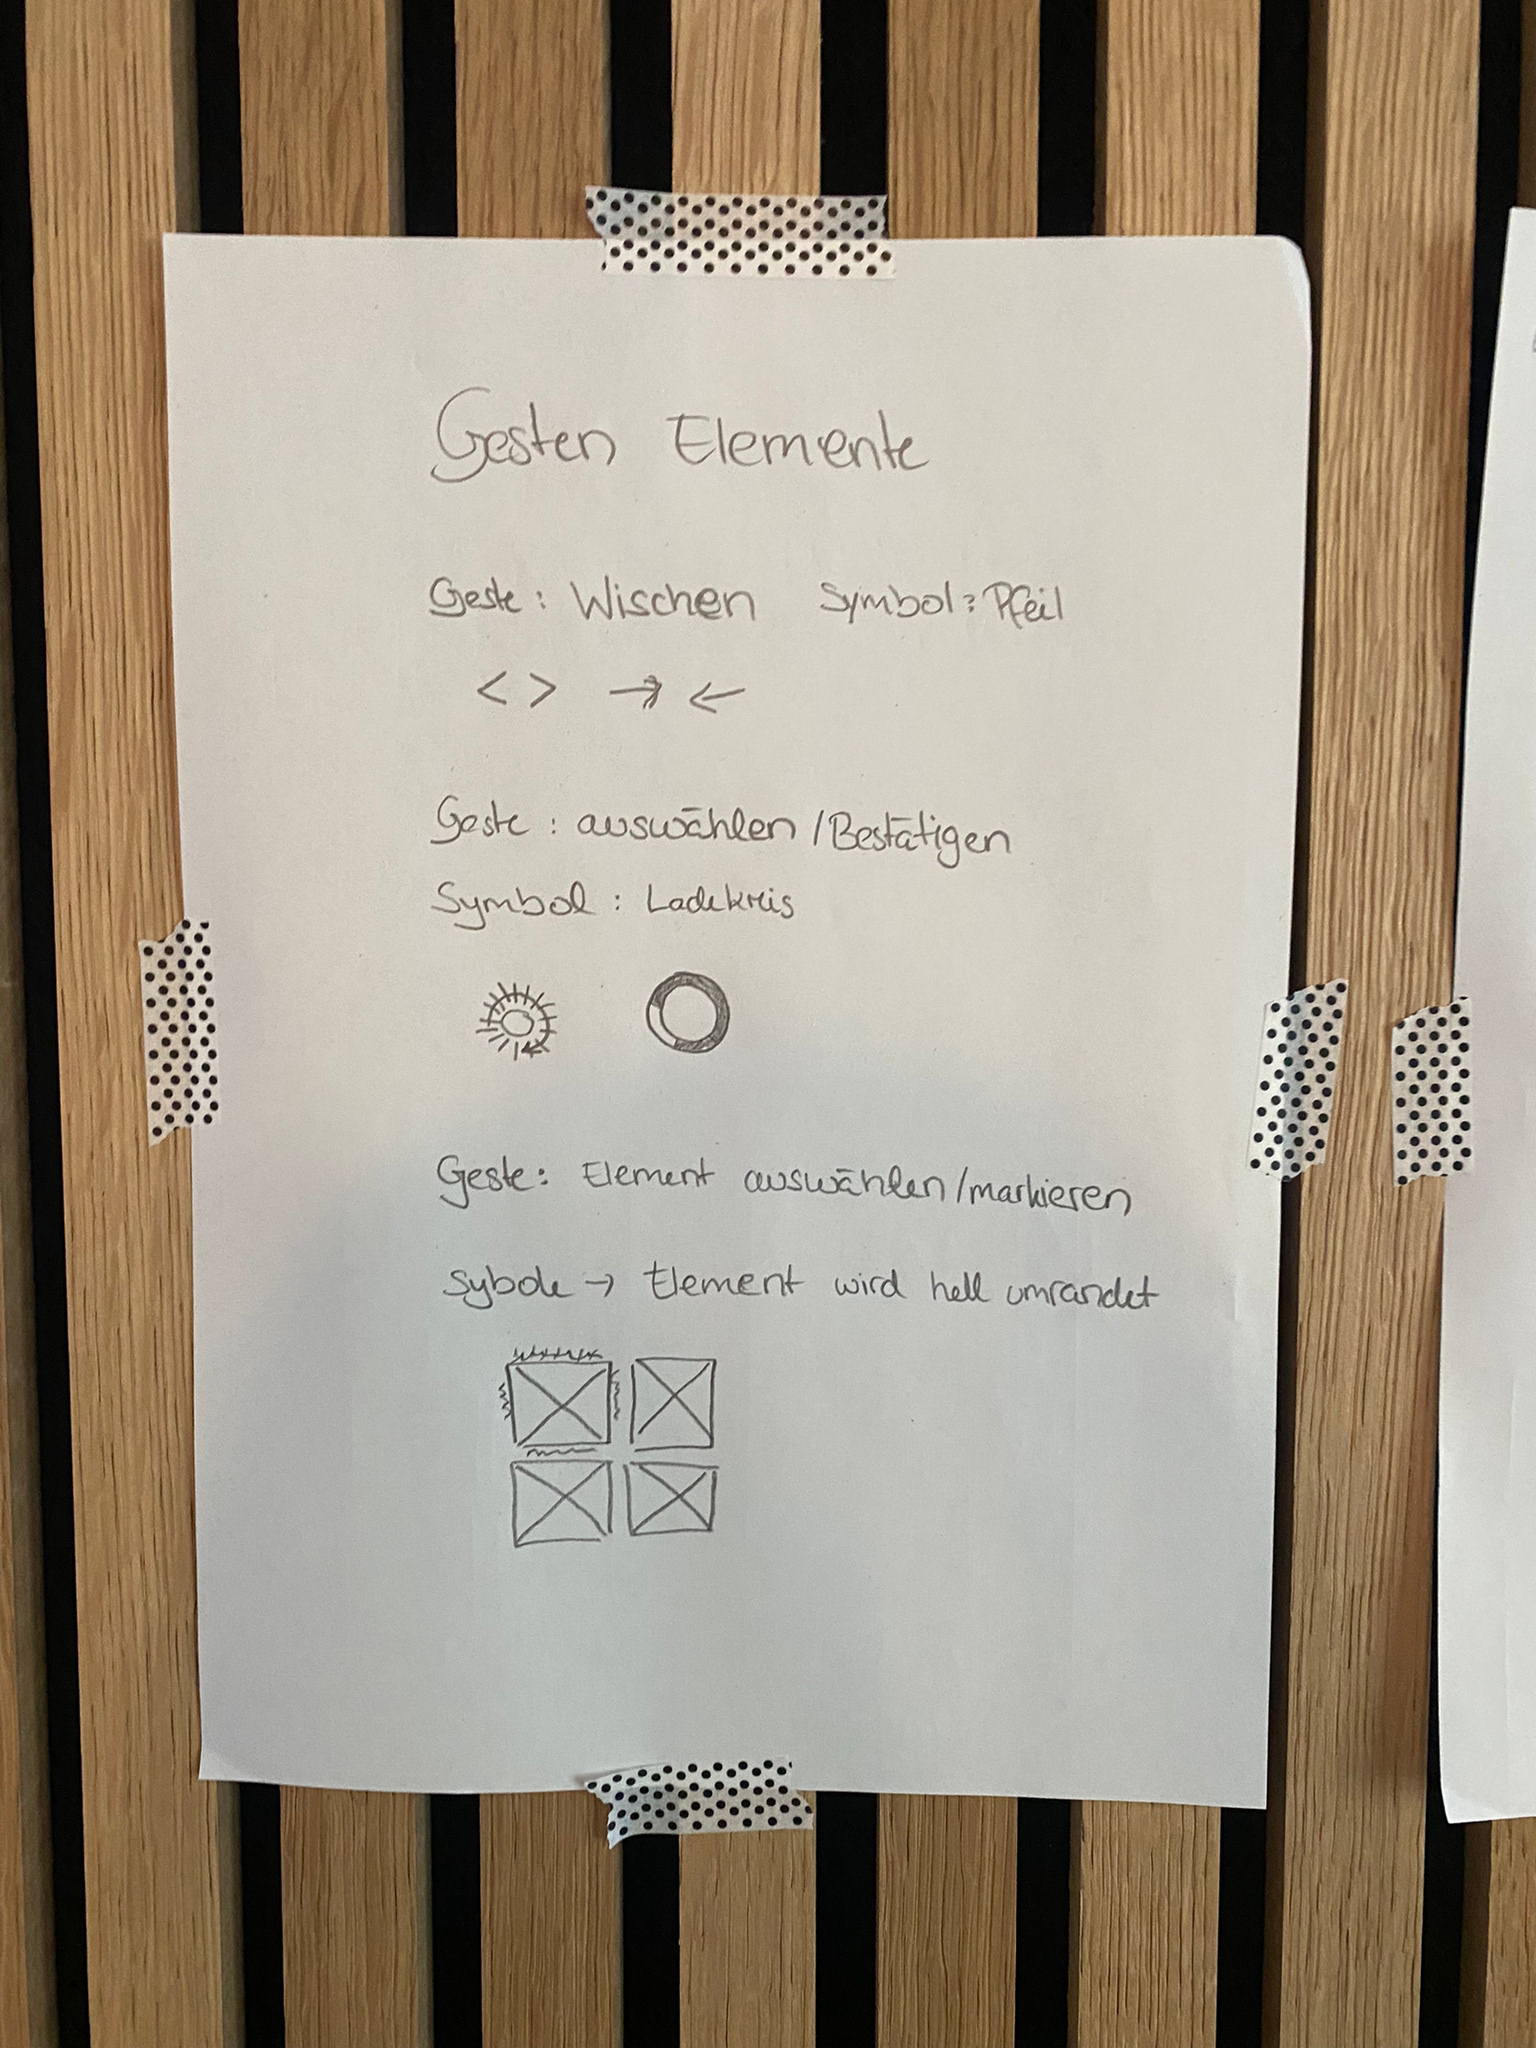 Gesten Elemente
Geste: Wischen Symbol: Pfeil
< > → ←
Geste: auswählen/Bestätigen
Symbol: Ladekreis
Geste: Element auswählen/markieren
Sybole → Element wird hell umrandet